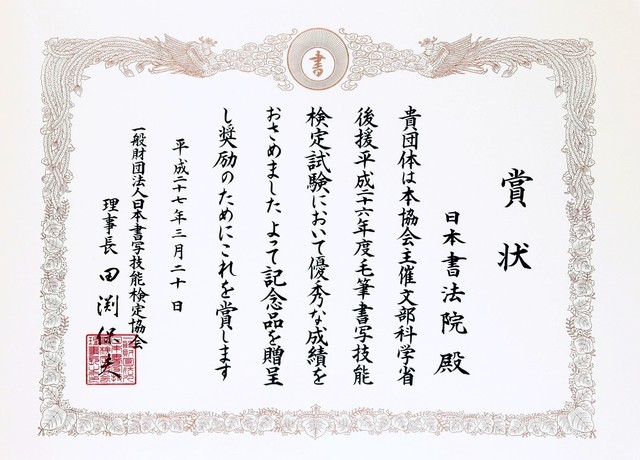 書
賞状
日本書法院殿
貴団体は本協会主催文部科学省
後援平成二十六年度毛筆書写技能
検定試験において優秀な成績を
おさめました よって記念品を贈呈
し奨励のためにこれを賞します
平成二十七年三月二十日
一般財団法人日本書写技能検定協会
理事長 田渕保夫